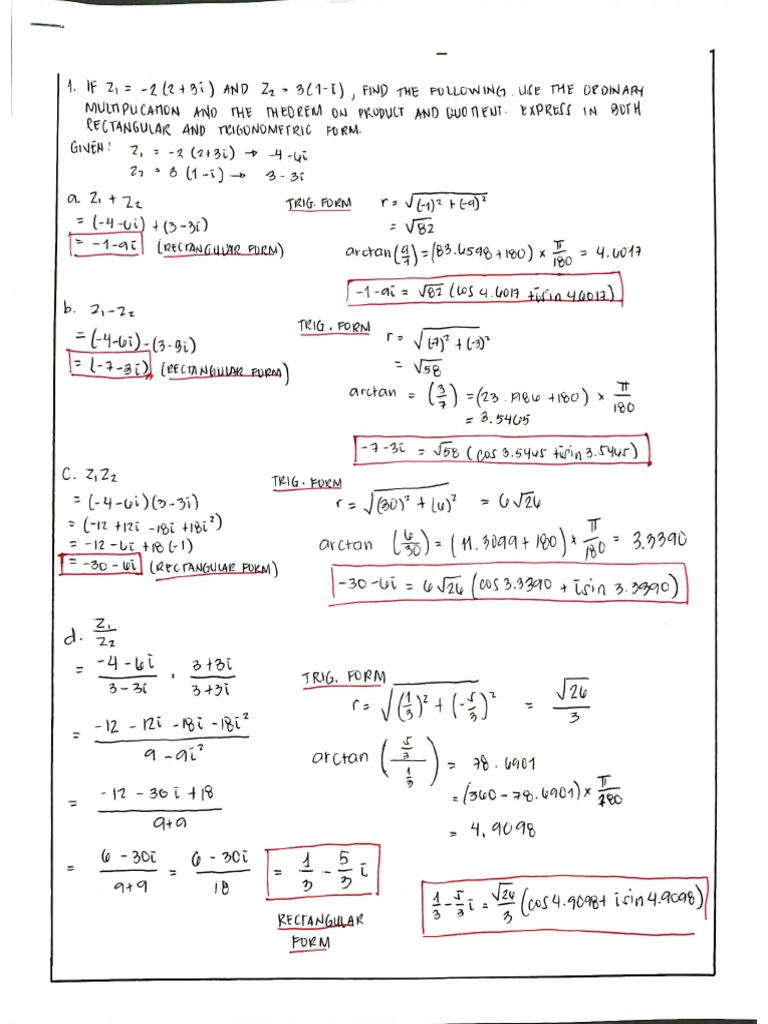 1. IF Z₁ = -2(2+3i) AND Z₂ = 3(1-i), FIND THE FOLLOWING. USE THE ORDINARY
MULTIPLICATION AND THE THEOREM ON PRODUCT AND QUOTIENT. EXPRESS IN BOTH
RECTANGULAR AND TRIGONOMETRIC FORM.
GIVEN: Z₁ = -2(2+3i) → -4-6i
Z₂ = 3(1-i) → 3-3i
a. Z₁ + Z₂
= (-4-6i)+(3-3i)
= -1-9i (RECTANGULAR FORM)
TRIG. FORM r = √(-1)² + (-9)²
= √82
arctan(9/1) = (83.6598+180) × π/180 = 4.6017
-1-9i = √82 (cos 4.6017 + isin 4.6017)
b. Z₁-Z₂
= (-4-6i)-(3-3i)
= (-7-3i) (RECTANGULAR FORM)
TRIG. FORM r = √(-7)² + (-3)²
= √58
arctan = (3/7) = (23.1986 +180) × π/180
= 3.5465
-7-3i = √58 (cos 3.5465 + isin 3.5465)
C. Z₁Z₂
= (-4-6i)(3-3i)
= (-12 +12i -18i +18i²)
= -12-6i+18(-1)
= -30-6i (RECTANGULAR FORM)
TRIG. FORM
r = √(30)² + (6)² = 6√26
arctan (6/30) = (11.3099+180) × π/180 = 3.3390
-30-6i = 6√26 (cos 3.3390 + isin 3.3390)
d. Z₁/Z₂
= -4-6i/3-3i · 3+3i/3+3i
= -12-12i-18i-18i²/9-9i²
= -12-30i+18/9+9
= 6-30i/9+9 = 6-30i/18 = 1/3 - 5/3 i
RECTANGULAR
FORM
TRIG. FORM
r = √(1/3)² + (-5/3)² = √26/3
arctan (5/3/1/3) = 78.6901
= (360-78.6901) × π/180
= 4.9098
1/3 - 5/3 i = √26/3 (cos 4.9098 + isin 4.9098)